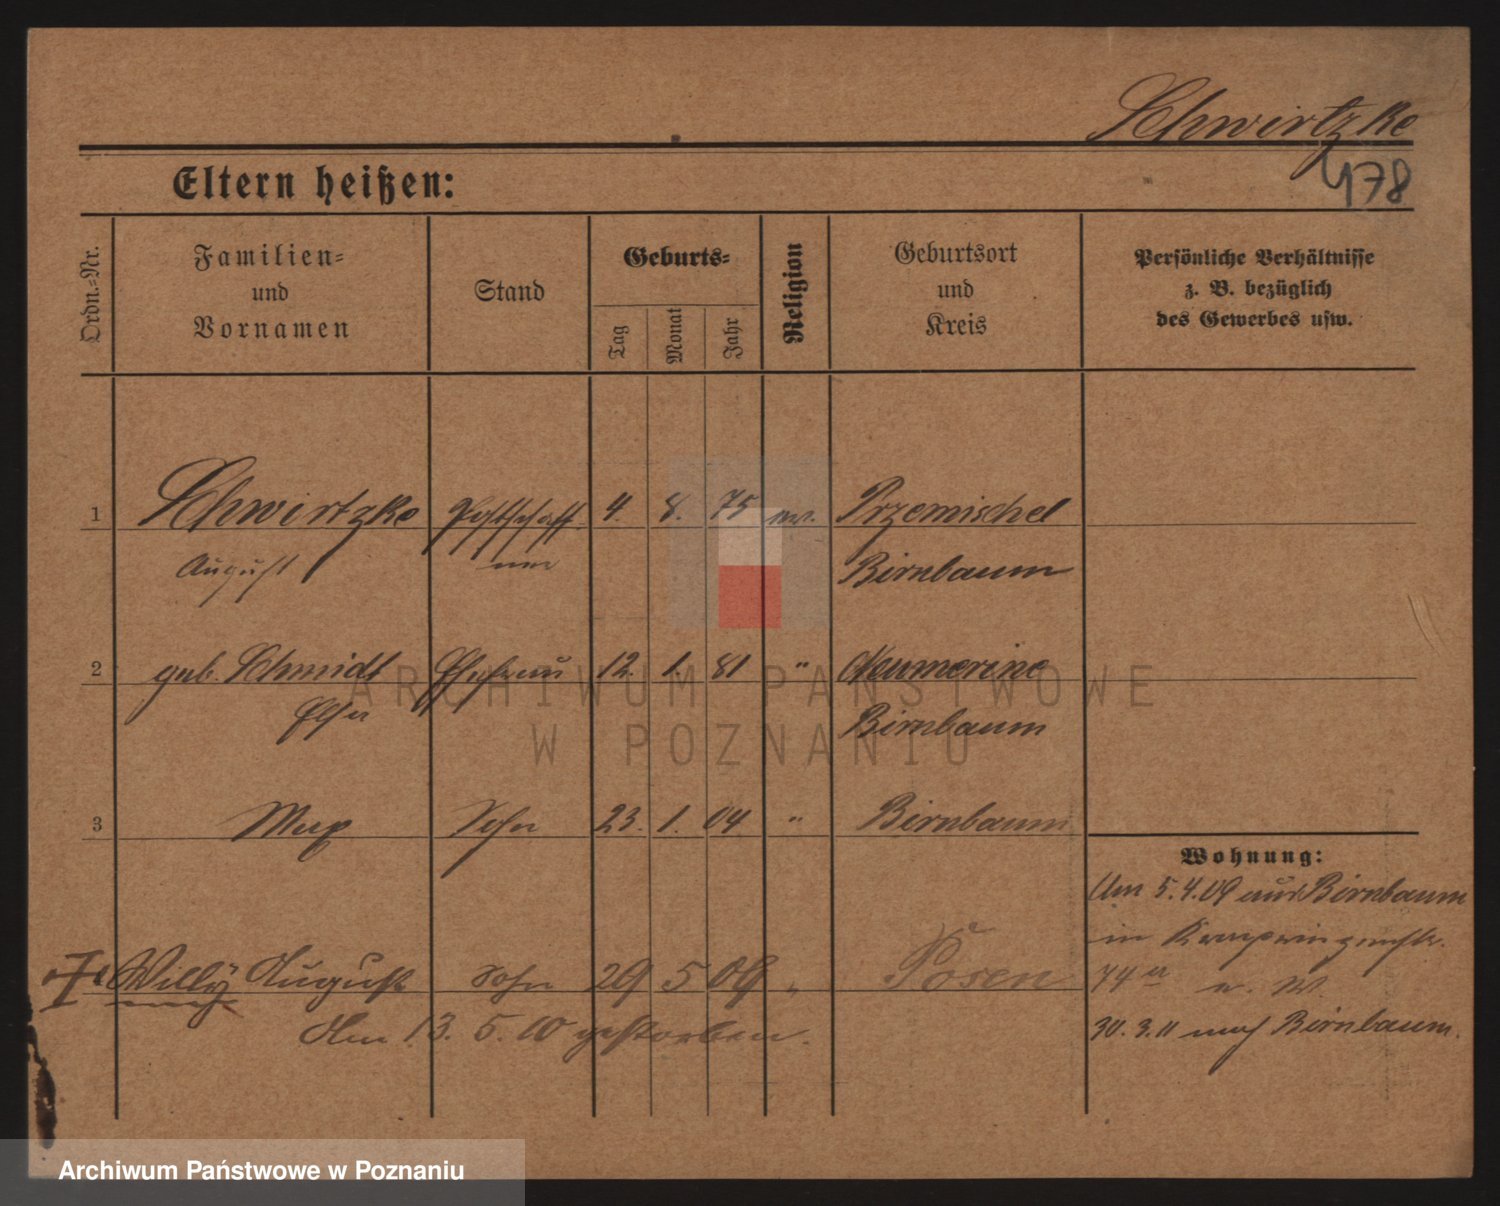 Schwirtzke
478
Eltern heißen:
Ordn.-Nr.
Familien-
und
Vornamen
Stand
Geburts-
Tag
Monat
Jahr
Religion
Geburtsort
und
Kreis
Persönliche Verhältnisse
z. B. bezüglich
des Gewerbes usw.
1 Schwirtzke Postschaff- 4. 8. 75 ev. Przemischel
August ner Birnbaum
2 geb. Schmidt Ehefrau 12. 1. 81 " Neumerine
Else Birnbaum
3 Max Sohn 23. 1. 04 " Birnbaum
Wohnung:
Am 5.4.09 aus Birnbaum
in
74 a e. W.
30. 3. 11 nach Birnbaum.
Willy August Sohn 29 5 09 " Posen
Am 13. 5. 10 gestorben.
ARCHIWUM PAŃSTWOWE
W POZNANIU
Archiwum Państwowe w Poznaniu